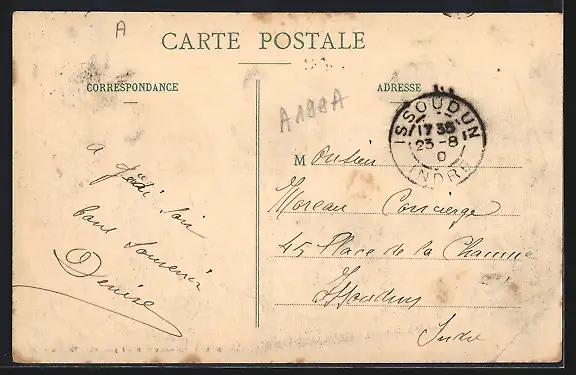 A
CARTE POSTALE
CORRESPONDANCE
ADRESSE
A199A
ISSOUDUN
17 35
23 - 8
0
INDRE
Monsieur
Moreau Concierge
45 Place de la
Issoudun
Indre
a Jeudi Soir
bons Souvenir
Denise